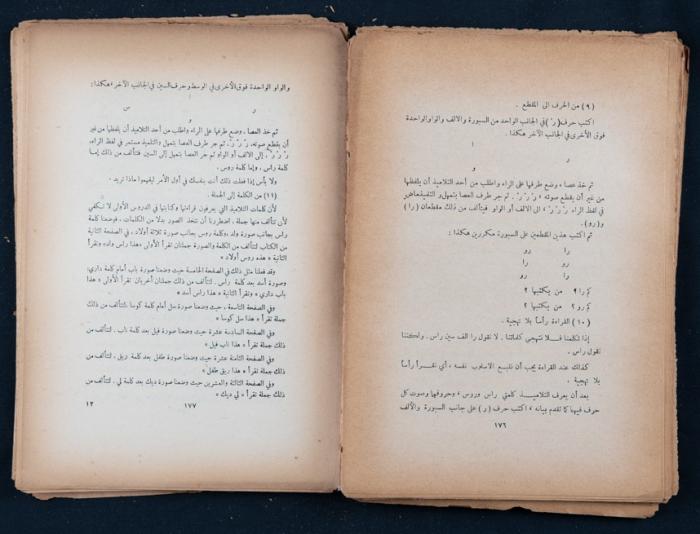 (٩) من الحرف الى المقطع .
اكتب حرف (رَ) في الجانب الواحد من السبورة والالف والواو الواحدة
فوق الأخرى في الجانب الآخر هكذا .
ا
ر
و
ثم خذ عصا ، وضع طرفها على الراء واطلب من أحد التلاميذ أن يلفظها
من غير أن يقطع صوته ، رْ رْ رْ . ثم جر طرف العصا بتمهل والتلميذ ماض
في لفظ الراء رْ رْ رْ ، الى الالف أو الواو فيتألف من ذلك مقطعان (را)
و(رو) .
ثم اكتب هذين المقطعين على السبورة مكررين هكذا :
را رو
رو را
را رو
كم را ؟ من يكتبها ؟
كم رو ؟ من يكتبها ؟
(١٠) القراءة رأساً بلا تهجية .
إذا تكلمنا فلا نتهجى كلماتنا . لا نقول را الف سين راس . ولكننا
نقول راس .
كذلك عند القراءة يجب أن نتبع الاسلوب نفسه ، أي نقرأ رأساً
بلا تهجية .
بعد أن يعرف التلاميذ كلمتي راس وروس ، وحروفها وصوت كل
حرف فيها كما تقدم بيانه ، اكتب حرف (ر) على جانب السبورة والألف
١٧٦
والواو الواحدة فوق الأخرى في الوسط وحرف السين في الجانب الآخر هكذا :
ا
ر س
و
ثم خذ العصا ، وضع طرفها على الراء واطلب من أحد التلاميذ أن يلفظها من غير
أن يقطع صوته، رْ رْ رْ . ثم جر طرف العصا بتمهل والتلميذ مستمر في لفظ الراء،
رْ رْ رْ ، إلى الالف أو الواو ثم جر العصا بتمهل إلى السين فتتألف من ذلك إما
كلمة راس ، وإما كلمة روس .
ولا بأس إذا فعلت ذلك أنت بنفسك في أول الأمر ليفهموا ماذا تريد .
(١١) من الكلمة إلى الجملة .
لأن كلمات التلاميذ التي يعرفون قراءتها وكتابتها في الدروس الأولى لا تكفي
لأن تتألف منها جملة ، اضطررنا أن نتخذ الصور بدلا من الكلمات . فوضعنا كلمة
راس بجانب صورة ولد ، وكلمة روس بجانب صورة ثلاثة أولاد ، في الصفحة الثانية
من الكتاب لتتألف من الكلمة والصورة جملتان تقرأ الأولى «هذا راس ولد» وتقرأ
الثانية « هذه روس أولاد »
وقد فعلنا مثل ذلك في الصفحة الخامسة حيث وضعنا صورة باب أمام كلمة داري،
وصورة أسد بعد كلمة راس . لتتألف من ذلك جملتان أخريان تقرأ الأولى « هذا
باب داري » وتقرأ الثانية « هذا راس أسد »
وفي الصفحة التاسعة ، حيث وضعنا صورة سل أمام كلمة كوسا ، لتتألف من ذلك
جملة تقرأ « هذا سل كوسا »
وفي الصفحة السادسة عشرة حيث وضعنا صورة فيل بعد كلمة ناب ، لتتألف من
ذلك جملة تقرأ « هذا ناب فيل »
وفي الصفحة الثامنة عشرة حيث وضعنا صورة طفل بعد كلمة ريق ، لتتألف من
ذلك جملة تقرأ « هذا ريق طفل »
وفي الصفحة الثالثة والعشرين حيث وضعنا صورة ديك بعد كلمة لي ، لتتألف من
ذلك جملة تقرأ « لي ديك »
١٧٧
١٢